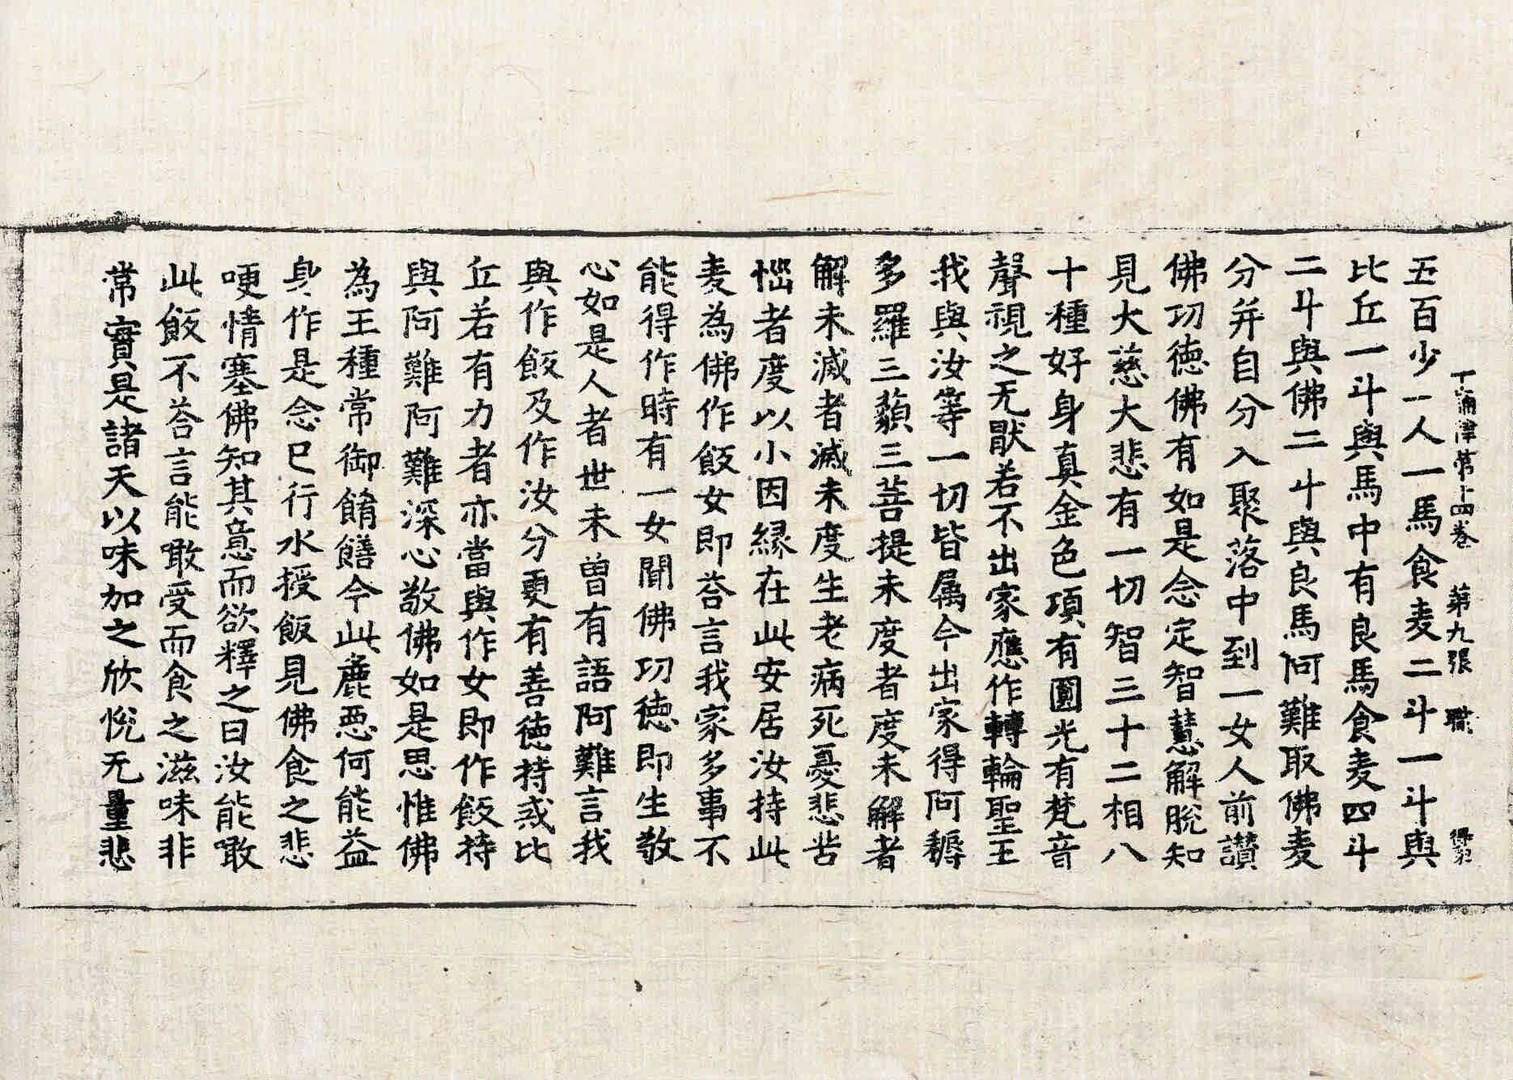 十誦律第十四卷 第九張 職
五百少一人一馬食麦二斗一斗與
比丘一斗與馬中有良馬食麦四斗
二斗與佛二斗與良馬阿難取佛麦
分并自分入聚落中到一女人前讃
佛㓛德佛有如是念定智慧解脫知
見大慈大悲有一切智三十二相八
十種好身真金色項有圓光有梵音
聲視之无猒若不出家應作轉輪聖王
我與汝等一切皆属今出家得阿耨
多羅三藐三菩提未度者度未解者
解未滅者滅未度生老病死憂悲苦
惱者度以小因縁在此安居汝持此
麦為佛作飯女即荅言我家多事不
能得作時有一女聞佛㓛德即生敬
心如是人者世未曽有語阿難言我
與作飯及作汝分更有善德持戒比
丘若有力者亦當與作女即作飯持
與阿難阿難深心敬佛如是思惟佛
為王種常御餚饍今此麁惡何能益
身作是念已行水授飯見佛食之悲
哽情塞佛知其意而欲釋之曰汝能噉
此飯不荅言能噉受而食之滋味非
常實是諸天以味加之欣恱无量悲